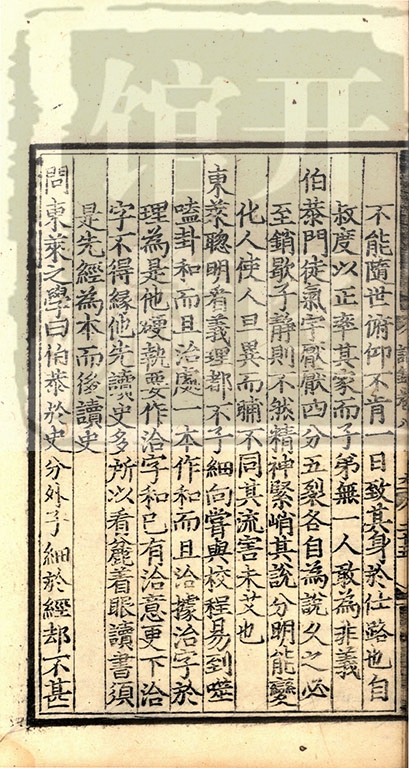 不能隨世俯仰不肯一日致其身於仕路也自
叔度以正率其家而子弟無一人敢為非義
伯恭門徒氣字厭厭四分五裂各自為說久之必
至銷歇子靜則不然精神緊峭其說分明能變
化人使人旦異而晡不同其流害未艾也
東萊聰明看義理都不子細向嘗與校程易到噬
嗑卦和而且治處一本作和而且洽據治字於
理為是他硬執要作洽字和已有洽意更下洽
字不得緣他先讀史多所以看麄着眼讀書須
是先經為本而後讀史
問東萊之學曰伯恭於史分外子細於經却不甚
開
馆